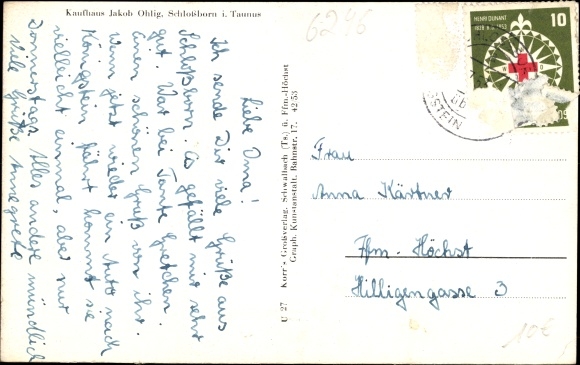 Kaufhaus Jakob Ohlig, Schloßborn i. Taunus
Liebe Oma!
Ich sende Dir viele Grüße aus
Schloßborn. Es gefällt mir sehr
gut. War bei Tante Gretchen.
Einen schönen Gruß von ihr.
Wann jetzt wieder ein Auto nach
Königstein fährt kommt sie
vielleicht einmal, aber nur
Donnerstag. Alles andere mündlich
Viele Grüße Annegrete
U 27 Kurr's Großverlag, Schwalbach (Ts.) ü. Ffm.-Höchst
Graph. Kunstanstalt, Bahnstr. 17. 42 53
6296
HENRI DUNANT
1828 1953
10
STEIN
Frau
Anna Kärtner
Ffm.-Höchst
Hilligengasse 3
10€